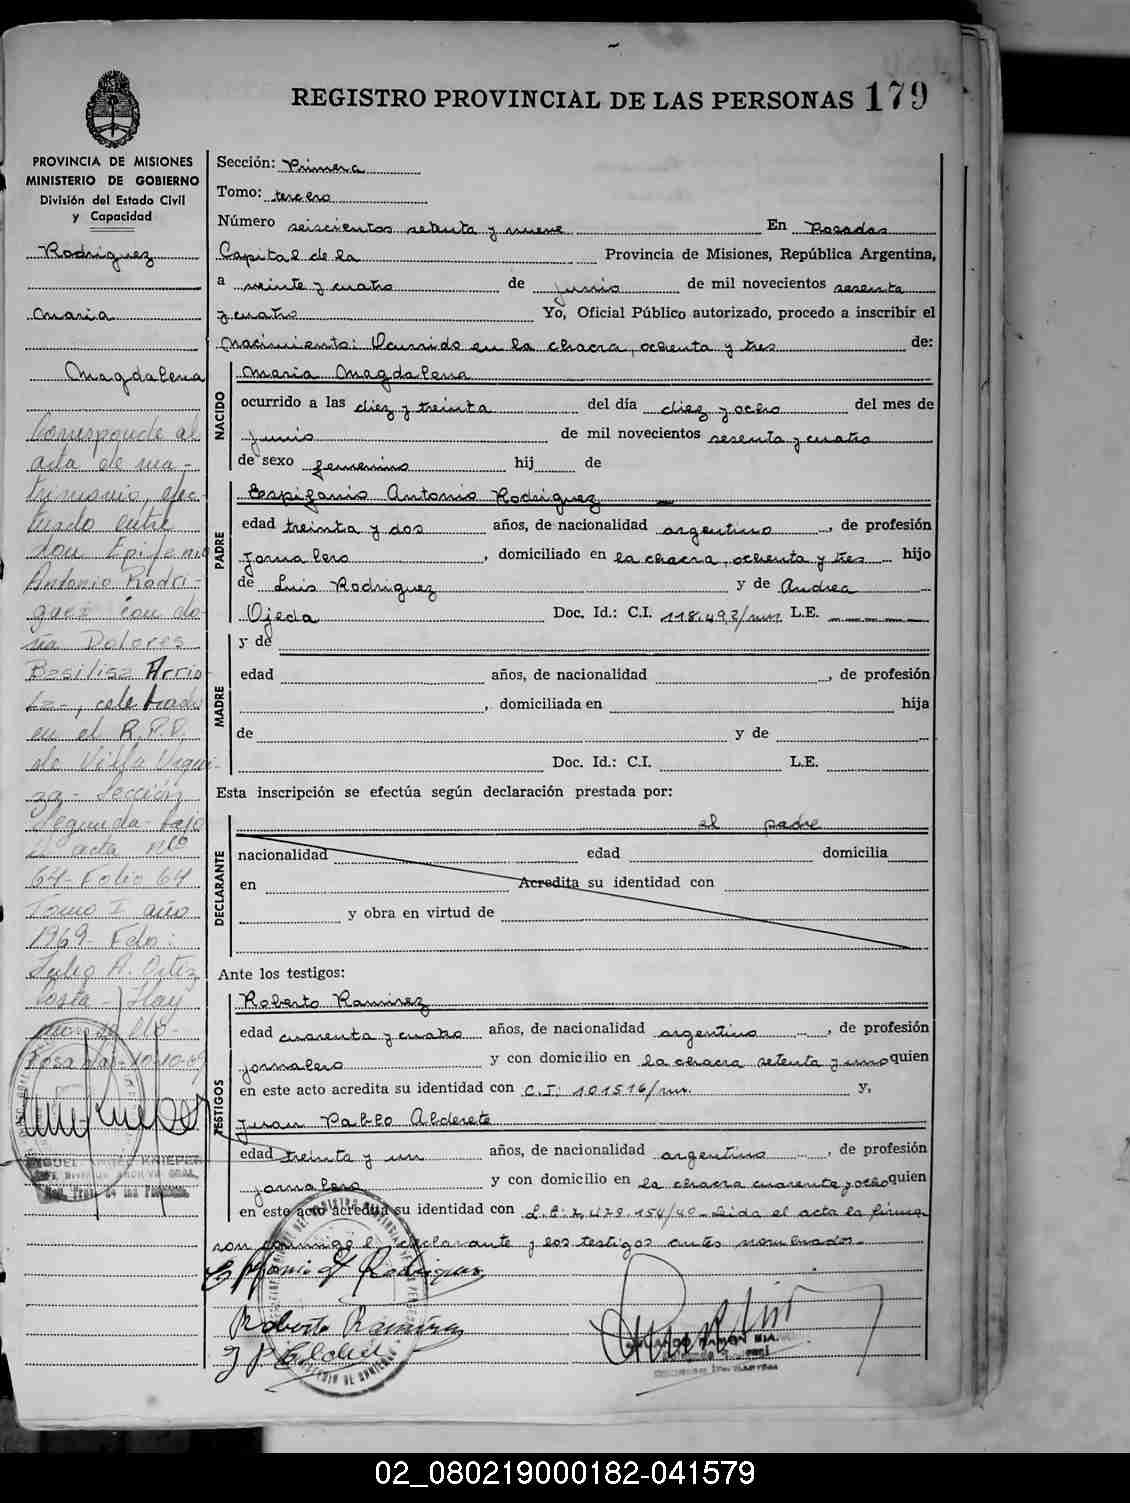 REGISTRO PROVINCIAL DE LAS PERSONAS 179
PROVINCIA DE MISIONES
MINISTERIO DE GOBIERNO
División del Estado Civil
y Capacidad
Rodriguez
Maria
Magdalena
Corresponde al
acta de ma-
trimonio, efec-
tuado entre
don Epifanio
Antonio Rodri-
guez con do-
ña Dolores
Basilisa Arrio
la-, celebrado
en el R.P.P.
de Villa Urqui-
za- Sección
Segunda- bajo
acta nº
64- Folio 64
Tomo I año
1969- Fdo:
Julio A. Ortiz
Costa- Hay
un sello-
Posadas-10-10-69
MIGUEL ANGEL KRIEPER
JEFE DIVISION ARCHIVO GRAL.
Reg. Prov. de las Personas
Sección: Primera
Tomo: tercero
Número seiscientos setenta y nueve En Posadas
Capital de la Provincia de Misiones, República Argentina,
a veinte y cuatro de junio de mil novecientos sesenta
y cuatro Yo, Oficial Público autorizado, procedo a inscribir el
Nacimiento: Ocurrido en la chacra, ochenta y tres de:
NACIDO
Maria Magdalena
ocurrido a las diez y treinta del día diez y ocho del mes de
junio de mil novecientos sesenta y cuatro
de sexo femenino hij de
PADRE
Espifanio Antonio Rodriguez
edad treinta y dos años, de nacionalidad argentino, de profesión
Jornalero, domiciliado en la chacra, ochenta y tres hijo
de Luis Rodriguez y de Andrea
Ojeda Doc. Id.: C.I. 118.492/mm L.E.
MADRE
y de
edad años, de nacionalidad , de profesión
, domiciliada en hija
de y de
Doc. Id.: C.I. L.E.
Esta inscripción se efectúa según declaración prestada por:
DECLARANTE
el padre
nacionalidad edad domicilia
en Acredita su identidad con
y obra en virtud de
Ante los testigos:
TESTIGOS
Roberto Ramirez
edad cuarenta y cuatro años, de nacionalidad argentino, de profesión
jornalero y con domicilio en la chacra setenta y uno quien
en este acto acredita su identidad con C.I: 101516/mm. y,
Juan Pablo Alderete
edad treinta y un años, de nacionalidad argentino, de profesión
jornalero y con domicilio en la chacra cuarenta y ocho quien
en este acto acredita su identidad con L.E: 7,479.154/40- Leida el acta la firma
ron conmigo el declarante y los testigos antes nombrados.-
Rodriguez
Roberto Ramirez
RAMON
02_080219000182-041579